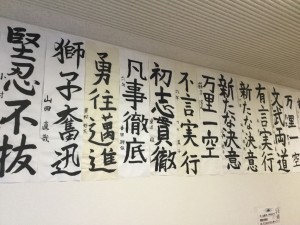 万里一空
文武両道
有言実行
新たな決意
新たな決意
万里一空
不言実行
初志貫徹
凡事徹底
勇往邁進
獅子奮迅
山田
堅忍不抜